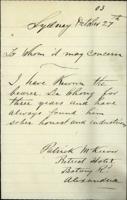 03
Sydney October 27th
To Whom it may concern
I have Known the
bearer, Lee Chong for
three years and have
always found him
sober honest and industrious
Patrick McKiern
Retreat Hotel
Botany Rd
Alexandria